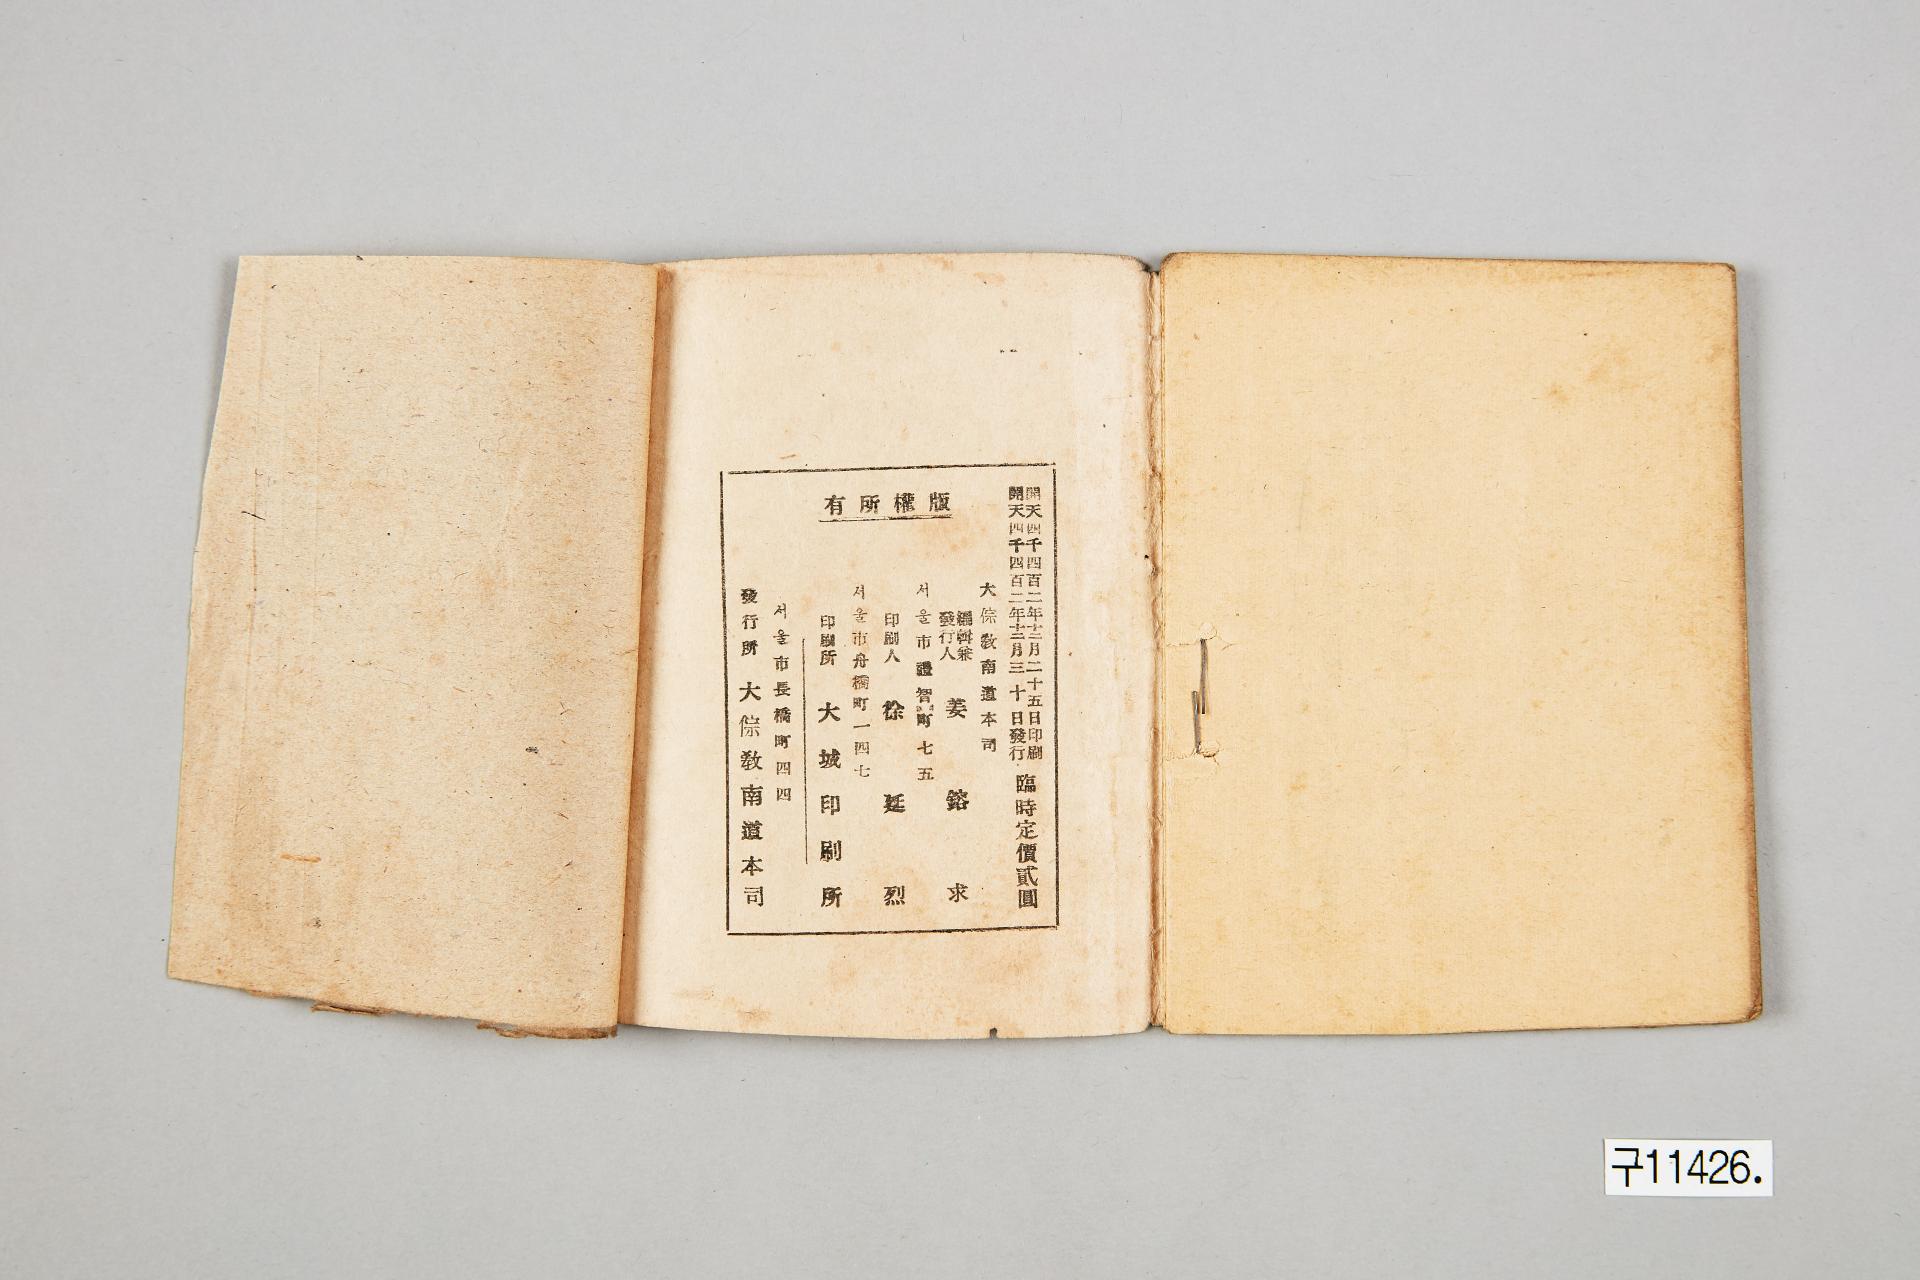 開天四千四百二年十二月二十五日印刷
開天四千四百二年十二月三十日發行
臨時定價貳圓
大倧敎南道本司
編輯兼
發行人
姜鎔求
서울市禮智町七五
印刷人 徐廷烈
서울市舟橋町一四七
印刷所 大城印刷所
서울市長橋町四四
發行所 大倧敎南道本司
版權所有
구11426.